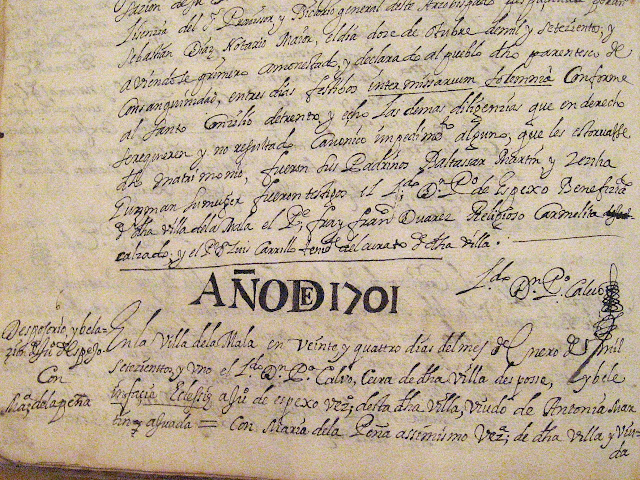 lisenzia del Sr Provisor y Vicario general deste Arzobispado
Sebastian Diaz Notario Maior, el dia doze de otubre de mil y setezientos; y
aviendose primero amonestad, y declarado al pueblo dho parentesco de
Consanguinidad, en tres dias festibos inter missarum solemnia Conforme
al Santo Conzilio de trento, y echo las demas dilixenzias que en derecho
se requeren y no resultado Canonico inpedimto alguno, que les estorvasse
dho matrimonio, fueron sus Padrinos Baltassar Martin y Zezilia
Guzman su muger fueron testigos el Ldo Dn Po de Espexo Benefiziado
de dha Villa de la Mala el Pe fray Franco Duarez Religioso Carmelita
calzado; y el Pe Dn Luis Carrillo tente del curato de dha Villa.
Ldo Dn Po Calvo
AÑO DE 1701
Desposorio, y bela-
zion de Ju de Espejo
Con
Ma de la peña
En la Villa de la Mala en Veinte y quattro dias del mes de Enero de mil
Setezientos, y uno el Ldo Dn Po Calvo, Cura de dha Villa despose, y bele
in fazie Eclesie a Ju de espexo vezo desta dha Villa, viudo de Antonia Mar
tin y aguada = Con Maria de la Peña assimismo veza de dha Villa y Viu-
da